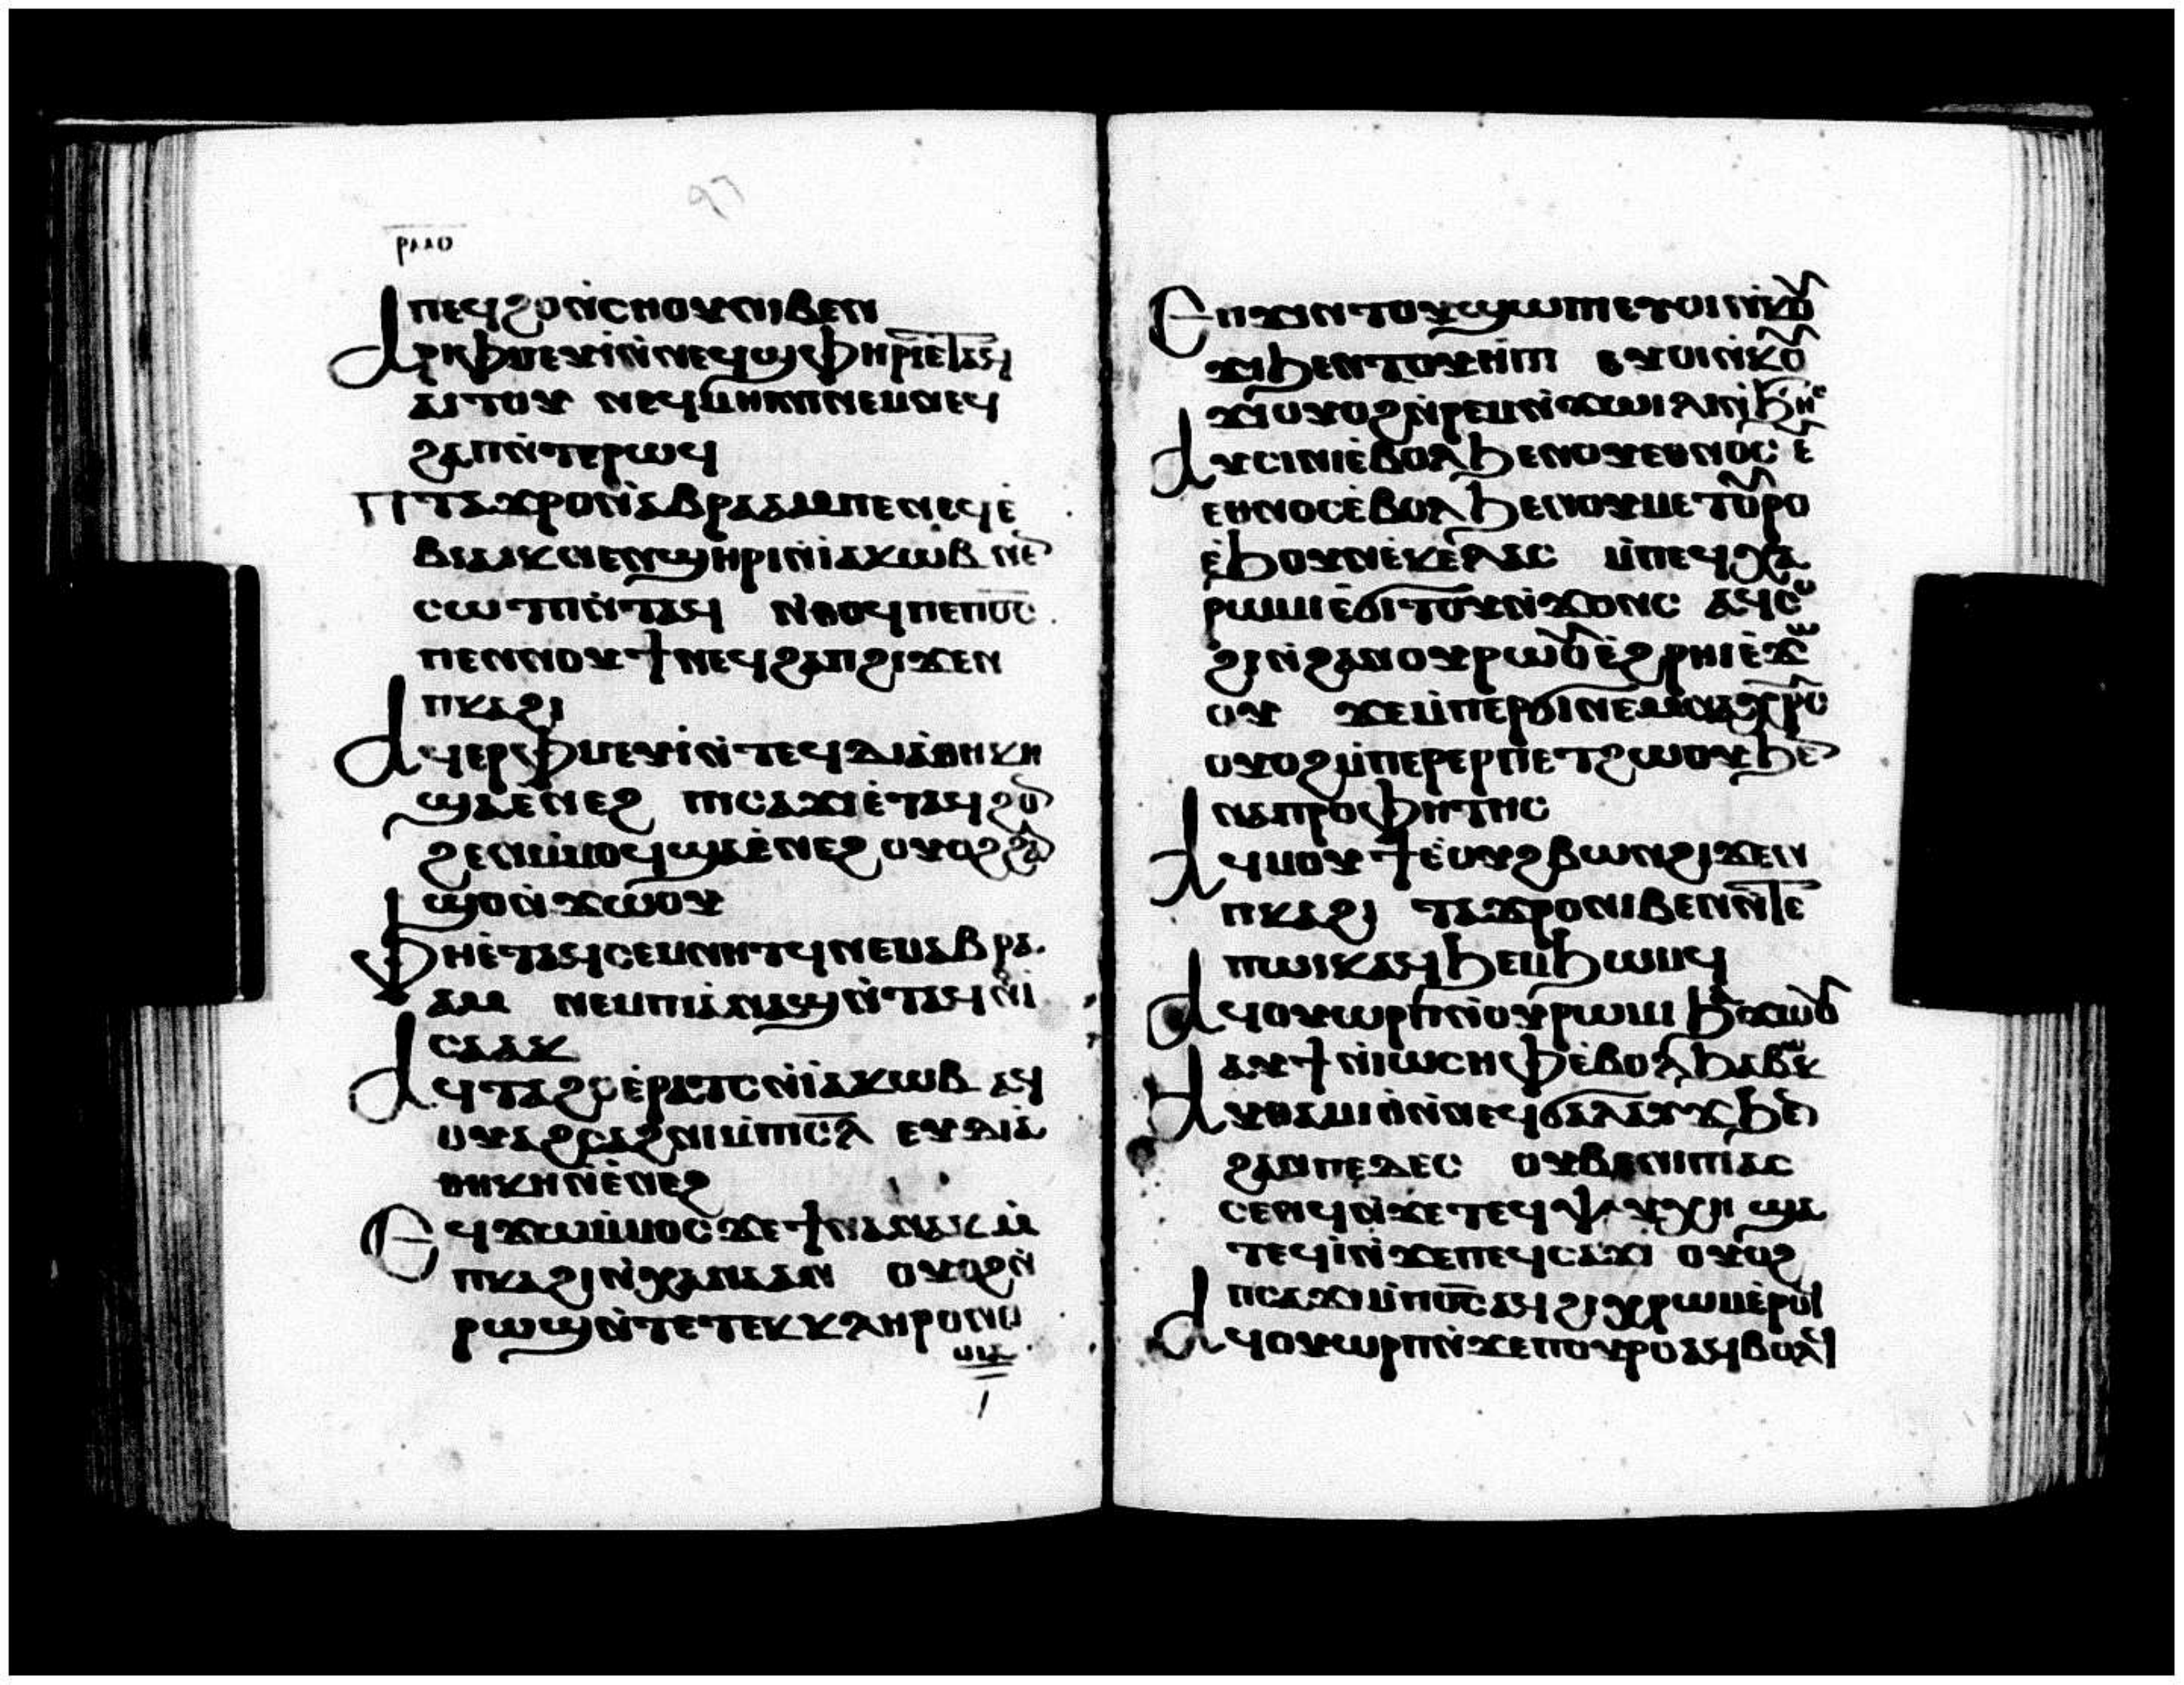 ⲡⲉϥϩⲟⲛ̀ⲥⲏⲟⲩⲛⲓⲃⲉⲛ
ⲁⲣⲓⲫⲙⲉⲩⲓ̀ⲛ̀ⲛⲉϥϣⲫⲏⲣⲓⲉ̀ⲧⲁϥ
ⲁⲓⲧⲟⲩ ⲛⲉϥⲙⲏⲓⲛⲓⲛⲉⲙⲛⲉϥ
ϩⲁⲡⲛ̀ⲧⲉⲣⲱϥ
ⲡⲧⲁϫⲣⲟⲛ̀ⲁⲃⲣⲁⲁⲙⲡⲉⲛⲉϥⲉ̀
ⲃⲓⲁⲓⲕⲛⲉⲛϣⲏⲣⲓⲛ̀ⲓⲁⲕⲱⲃ ⲛⲉ̄
ⲥⲱⲧⲡⲛ̀ⲧⲁϥ ⲛ̀ⲑⲟϥⲡⲉⲡⲟ̅ⲥ̅
ⲡⲉⲛⲛⲟⲩϯⲛⲉϥϩⲁⲡϩⲓϫⲉⲛ
ⲡⲕⲁϩⲓ
ⲁϥⲉⲣⲫⲙⲉⲩⲓ̀ⲛ̀ⲧⲉϥⲇⲓⲁ̀ⲑⲏⲕⲏ
ϣⲁⲉ̀ⲛⲉϩ ⲡⲓⲥⲁϫⲓⲉ̀ⲧⲁϥϩⲟ̄
ϩⲉⲛⲙ̀ⲙⲟϥϣⲁⲉ̀ⲛⲉϩ ⲟⲩⲟϩϩⲁ̄
ϣⲟⲛ̀ϫⲱⲟⲩ
ⲫⲏⲉ̀ⲧⲁϥⲥⲉⲙⲛⲏⲧϥⲛⲉⲙⲁⲃⲣⲁ
ⲁⲙ ⲛⲉⲙⲡⲓⲁ̀ⲛⲁϣⲛ̀ⲧⲁϥⲛ̀ⲓ
ⲥⲁⲁⲕ
ⲁϥⲧⲁϩⲟⲉ̀ⲣⲁⲧⲥⲛ̀ⲓⲁⲕⲱⲃ ⲁϥ
ⲟⲩⲁϩⲥⲁϩⲛⲓⲙ̀ⲡⲓⲥ̅ⲗ̅ ⲉⲩⲇⲓⲁ̀
ⲑⲏⲕⲏⲛ̀ⲉ̀ⲛⲉϩ
ⲉϥϫⲱⲙ̀ⲙⲟⲥϫⲉϯⲛⲁⲛⲁⲕⲙ̀
ⲡⲕⲁϩⲓⲛ̀ⲭⲁⲛⲁⲁⲛ ⲟⲩⲟϩⲛ̀
ⲣⲱϣⲛ̀ⲧⲉⲧⲉⲕⲕⲗⲏⲣⲟⲛⲟ
ⲙⲓⲁ
ⲉⲡϫⲓⲛⲧⲟⲩϣⲱⲡⲓⲉⲧⲟⲓⲛ̀ⲕⲟ̄
ϫⲓϧⲉⲛⲧⲟⲩⲏ̀ⲡⲓ ⲉⲩⲟⲓⲛ̀ⲕⲟ̄
ϫⲓⲟⲩⲟϩⲛ̀ⲣⲉⲙⲛ̀ϫⲱⲓⲗⲓⲛ̀ϧⲏ
ⲁⲩⲥⲓⲛⲓⲉ̀ⲃⲟⲗϧⲉⲛⲟⲩⲉⲑⲛⲟⲥ ⲉ̀
ⲉⲑⲛⲟⲥⲉ̀ⲃⲟⲗϧⲉⲛⲟⲩⲙⲉⲧⲟ̄ⲣⲟ
ⲉ̀ϧⲟⲩⲛⲉ̀ⲕⲉⲗⲁⲥ ⲙ̀ⲡⲉϥⲭⲁ
ⲣⲱⲙⲓⲉ̀ϭⲓⲧⲟⲩⲛ̀ϫⲟⲛⲥ ⲁϥⲥ
ϩⲓⲛ̀ϩⲁⲛⲟⲩⲣⲱⲟ̄ⲉ̀ϩⲣⲏⲓⲉ̀ϫⲱ
ⲟⲩ ϫⲉⲙ̀ⲡⲉⲣϭⲓⲛⲉⲙⲛⲁⲭⲣ̅ⲥ̅
ⲟⲩⲟϩⲙ̀ⲡⲉⲣⲉⲣⲡⲉⲧϩⲱⲟⲩϧⲉ̄
ⲛⲁⲡⲣⲟⲫⲏⲧⲏⲥ
ⲁϥⲙⲟⲩϯⲉ̀ⲟⲩϩⲃⲱⲛϩⲓϫⲉⲛ
ⲡⲕⲁϩⲓ ⲧⲁϫⲣⲟⲛⲓⲃⲉⲛⲛ̀ⲧⲉ
ⲡⲱⲓⲕⲁϥϧⲉⲙϧⲱⲙϥ
ⲁϥⲟⲩⲱⲣⲡⲛ̀ⲟⲩⲣⲱⲙⲓ ϧⲁϫⲱⲟ̄
ⲁⲩϯⲛ̀ⲓⲱⲥⲏⲫⲉ̀ⲃⲟⲗϧⲁⲃⲱⲕ
ⲁⲩⲑⲉⲃⲓⲟⲛ̀ⲛⲉϥϭⲁⲗⲁⲩϫϧⲉ̄
ϩⲁⲛⲡⲉⲇⲉⲥ ⲟⲩⲃⲉⲛⲓⲡⲓⲁⲥ
ⲥⲉⲛϥⲛ̀ϫⲉⲧⲉϥⲯⲩⲭⲏ ϣⲁ
ⲧⲉϥⲓ̀ⲛ̀ϫⲉⲡⲉϥⲥⲁϫⲓ ⲟⲩⲟϩ
ⲡⲥⲁϫⲓⲙ̀ⲡⲟ̅ⲥ̅ⲁϥϩⲓⲭⲣⲱⲙⲉ̀ⲣⲟϥ
ⲁϥⲟⲩⲱⲣⲡⲛ̀ϫⲉⲡⲟⲩⲣⲟⲁϥⲃⲟⲗϥ